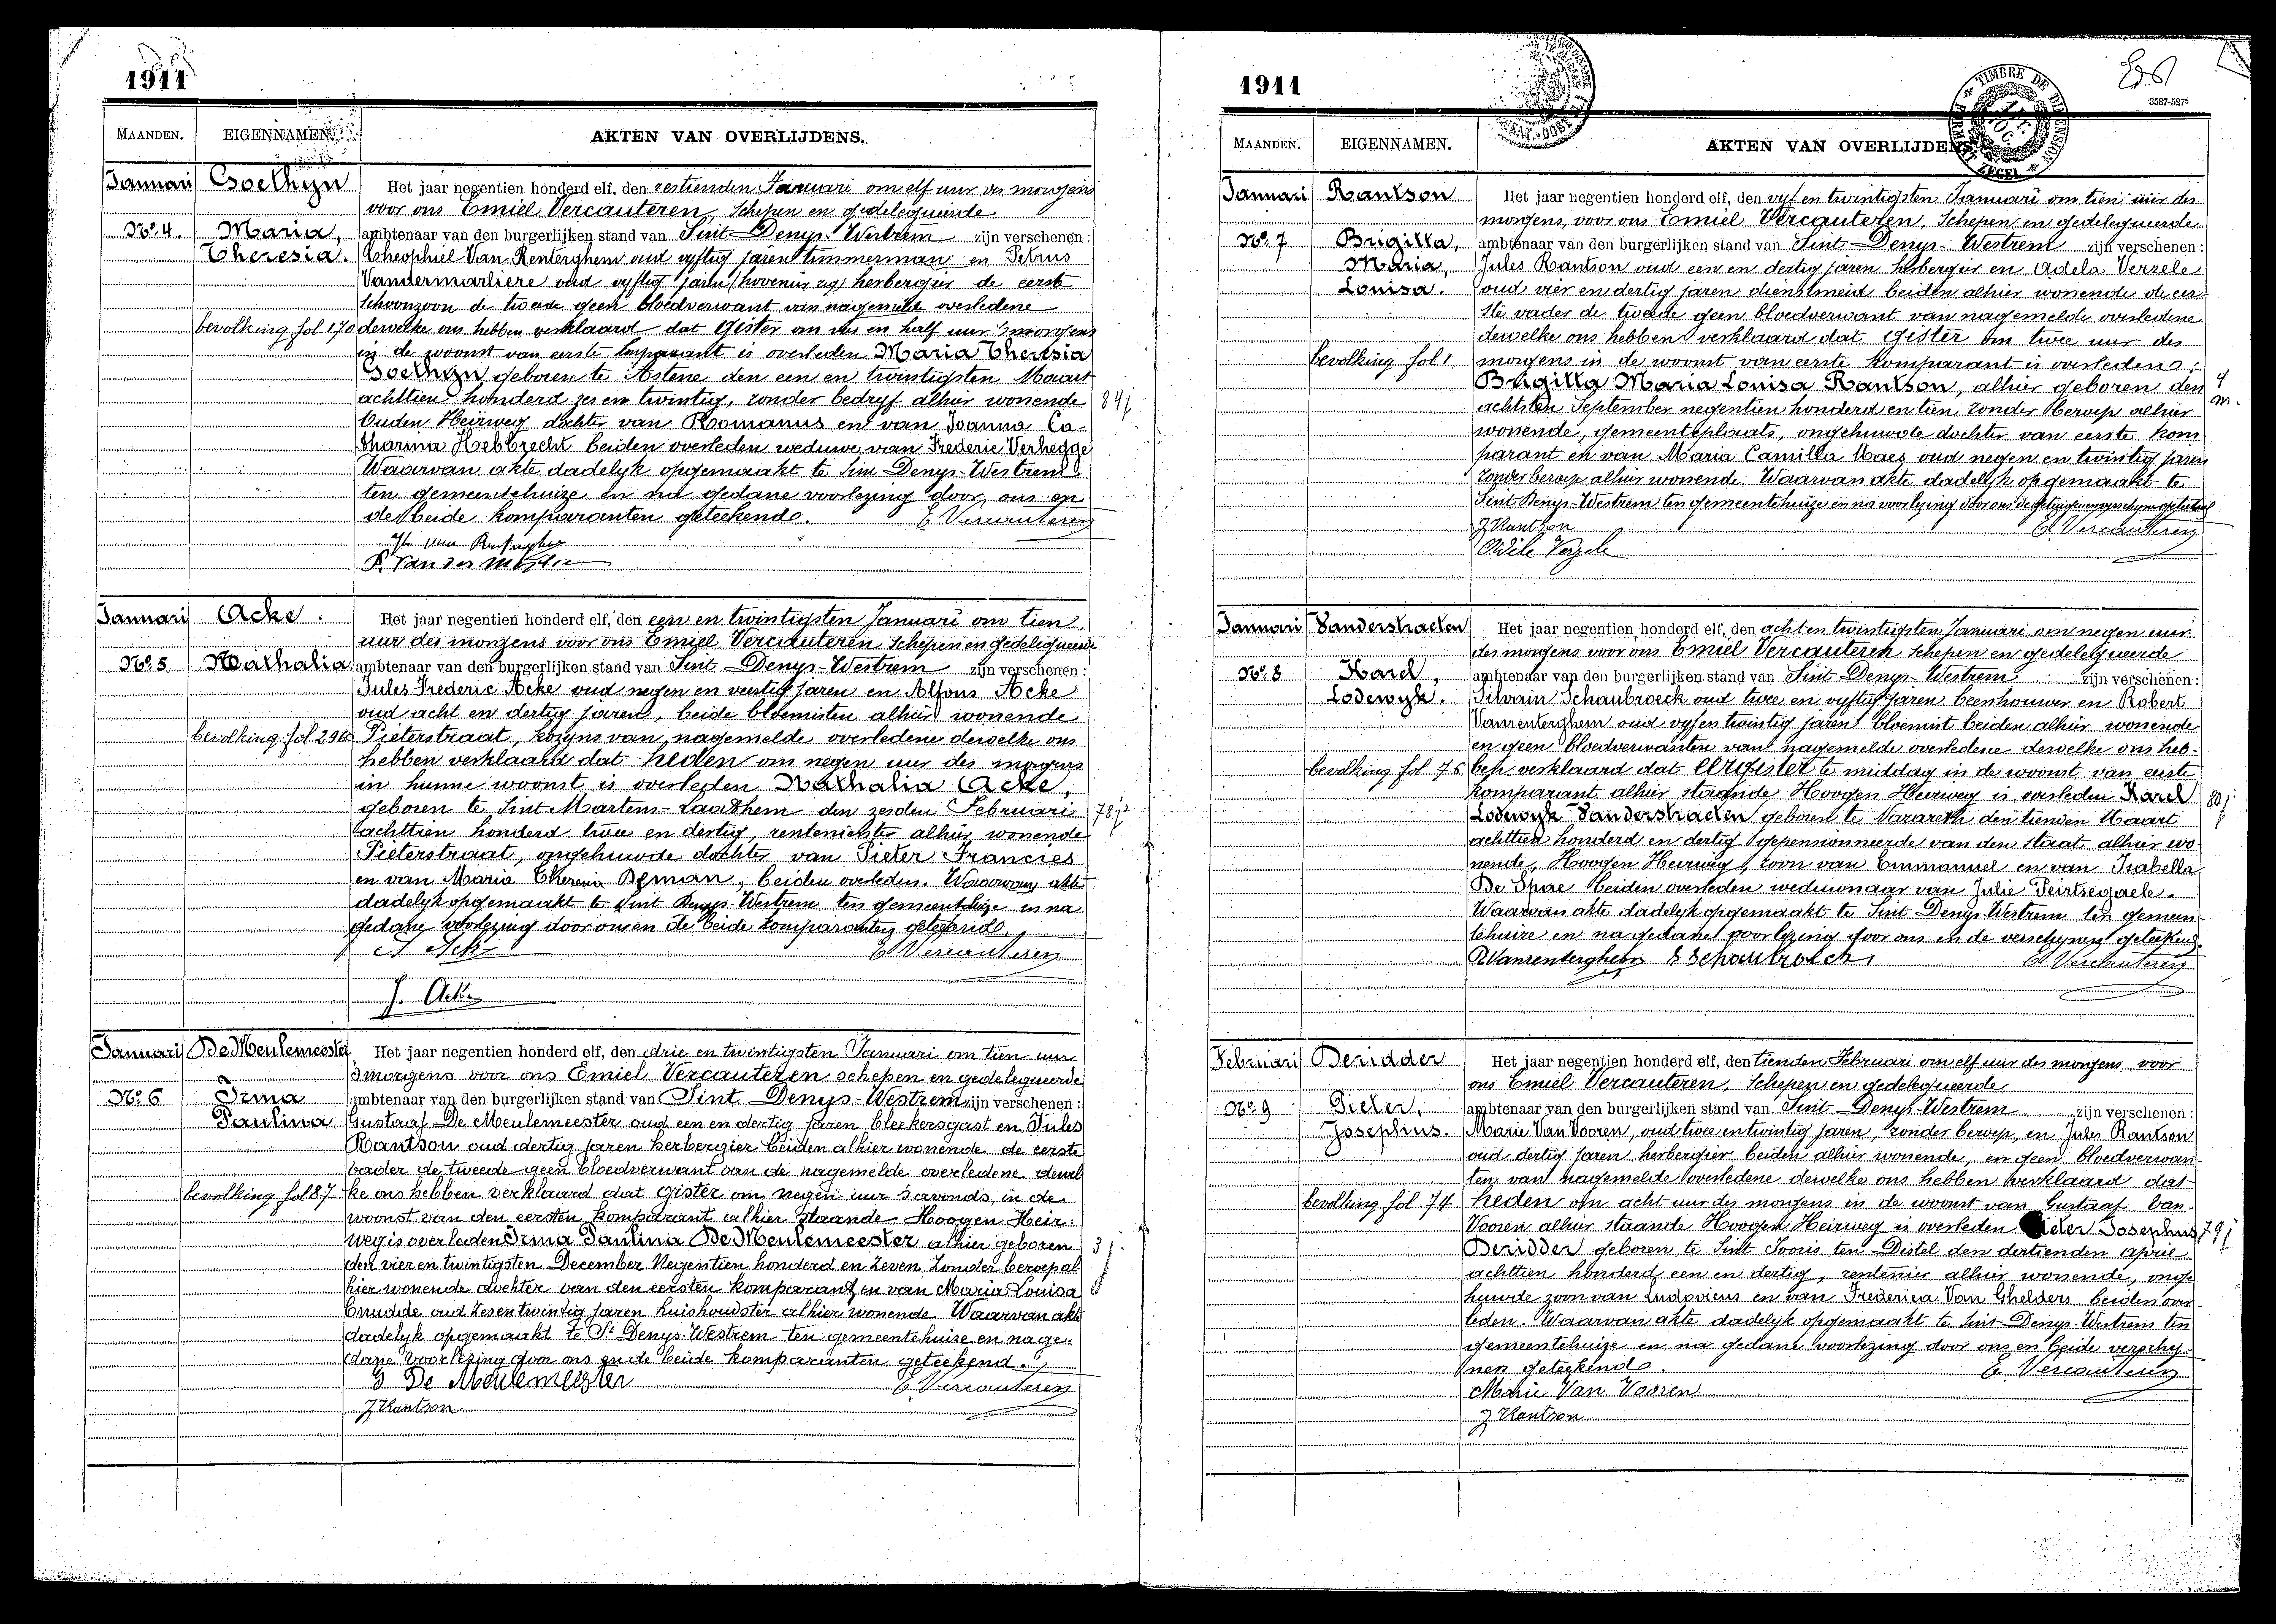 1911
MAANDEN.
EIGENNAMEN.
AKTEN VAN OVERLIJDENS.
Januari
Goethyn
No. 4.
Maria,
Theresia.
bevolking fol 170
Het jaar negentien honderd elf, den zestienden Januari om elf uur des morgens
voor ons Emiel Vercauteren, Schepen en gedelegueerde
ambtenaar van den burgerlijken stand van Sint-Denys-Westrem zijn verschenen:
Theophiel Van Renterghem oud vyftig jaren timmerman en Petrus
Vandermarliere oud vyftig jaren herbergier de eerste
schoonzoon de tweede geen bloedverwant van nagemelde overledene
dewelke ons hebben verklaard dat gister om en half uur 's morgens
in de woonst van eerste komparant is overleden Maria Theresia
Goethyn geboren te Astene den een en twintigsten Maart
achttien honderd zes en twintig, zonder bedryf alhier wonende
Ouden Heirweg dochter van Romanus en van Joanna Ca-
tharina Hebbrecht beiden overleden weduwe van Frederic Verhegge
Waarvan akte dadelyk opgemaakt te Sint-Denys-Westrem
ten gemeentehuize en na gedane voorlezing door ons en
de beide komparanten geteekend.
E Vercauteren
84 j
Januari
Acke.
No. 5
Nathalia
bevolking fol 296
Het jaar negentien honderd elf, den een en twintigsten Januari om tien
uur des morgens voor ons Emiel Vercauteren, Schepen en gedelegueerde
ambtenaar van den burgerlijken stand van Sint-Denys-Westrem zijn verschenen:
Jules Frederic Acke oud negen en veertig jaren en Alfons Acke
oud acht en dertig jaren, beide bloemisten alhier wonende
Pieterstraat, kozyns van nagemelde overledene dewelke ons
hebben verklaard dat heden om negen uur des morgens
in hunne woonst is overleden Nathalia Acke,
geboren te Sint Martens-Laathem den zesden Februari
achttien honderd twee en dertig, rentenierster alhier wonende
Pieterstraat, ongehuwde dochter van Pieter Francies
en van Maria Theresia, beiden overleden. Waarvan akte
dadelyk opgemaakt te Sint Denys-Westrem ten gemeentehuize en na
gedane voorlezing door ons en de beide komparanten geteekend.
78 j
A Acke
E Vercauteren
J. Acke
Januari
De Meulemeester
No. 6
Irma
Paulina
bevolking fol 87
Het jaar negentien honderd elf, den drie en twintigsten Januari om tien uur
smorgens voor ons Emiel Vercauteren schepen en gedelegueerde
ambtenaar van den burgerlijken stand van Sint Denys-Westrem zijn verschenen:
Gustaaf De Meulemeester oud een en dertig jaren bleekersgast en Jules
Rantson oud dertig jaren herbergier beiden alhier wonende de eerste
vader de tweede geen bloedverwant van de nagemelde overledene dewel
ke ons hebben verklaard dat gister om negen uur s'avonds, in de
woonst van den eersten komparant alhier staande Hoogen Heir-
weg is overleden Irma Paulina De Meulemeester alhier geboren
den vier en twintigsten December Negentien honderd en Zeven Zonder beroep al
hier wonende dochter van den eersten komparant en van Maria Louisa
Cnudde oud Zesentwintig jaren huishoudster alhier wonende. Waarvan akte
dadelyk opgemaakt te St Denys-Westrem ten gemeentehuize en na ge-
dane voorlezing door ons en de beide komparanten geteekend.
3 j
G De Meulemeester
E. Vercauteren
J Rantson
1911
TIMBRE DE DIMENSION
3587-5275
MAANDEN.
EIGENNAMEN.
AKTEN VAN OVERLIJDENS.
Januari
Rantson
No. 7
Brigitta,
Maria,
Louisa.
bevolking fol 1
Het jaar negentien honderd elf, den vyf en twintigsten Januari om tien uur des
morgens, voor ons Emiel Vercauteren, Schepen en gedelegueerde
ambtenaar van den burgerlijken stand van Sint-Denys-Westrem zijn verschenen:
Jules Rantson oud een en dertig jaren herbergier en Adela Verzele
oud vier en dertig jaren dienstmeid beiden alhier wonende de eer-
ste vader de tweede geen bloedverwant van nagemelde overledene
dewelke ons hebben verklaard dat gister om twee uur des
morgens in de woonst van eerste komparant is overleden:
Brigitta Maria Louisa Rantson, alhier geboren den
achtsten September negentien honderd en tien zonder beroep alhier
wonende, gemeenteplaats, ongehuwde dochter van eerste kom
parant en van Maria Camilla Maes oud negen en twintig jaren
zonder beroep alhier wonende. Waarvan akte dadelyk opgemaakt te
Sint Denys-Westrem ten gemeentehuize en na voorlezing door ons
4 m.
J Rantson
E. Vercauteren
Januari
Vanderstraeten
No. 8
Karel,
Lodewyk.
bevolking fol 75
Het jaar negentien honderd elf, den acht en twintigsten Januari om negen uur
des morgens voor ons Emiel Vercauteren Schepen en gedelegueerde
ambtenaar van den burgerlijken stand van Sint-Denys-Westrem zijn verschenen:
Silvain Schaubroeck oud twee en vyftig jaren beenhouwer en Robert
Vanrenterghem oud vyf en twintig jaren bloemist beiden alhier wonende
en geen bloedverwanten van nagemelde overledene dewelke ons heb-
ben verklaard dat eergister te middag in de woonst van eerste
komparant alhier staande Hoogen Heirweg is overleden Karel
Lodewyk Vanderstraeten geboren te Nazareth den tienden Maart
achttien honderd en dertig gepensionneerde van den staat alhier wo
nende, Hoogen Heirweg, zoon van Emmanuel en van Isabella
De Spae beiden overleden weduwnaar van Julie Peirtsegaele.
Waarvan akte dadelyk opgemaakt te Sint Denys Westrem ten gemeen
tehuize en na gedane voorlezing door ons en de verschynen geteekend.
80 j
R Vanrenterghem
S Schaubroeck
E Vercauteren
Februari
Deridder
No. 9
Pieter,
Josephus.
bevolking fol 74
Het jaar negentien honderd elf, den tienden Februari om elf uur des morgens voor
ons Emiel Vercauteren, Schepen en gedelegueerde
ambtenaar van den burgerlijken stand van Sint-Denys-Westrem zijn verschenen:
Marie Van Vooren, oud twee en twintig jaren, zonder beroep, en Jules Rantson
oud dertig jaren herbergier beiden alhier wonende, en geen bloedverwan
ten van nagemelde overledene dewelke ons hebben verklaard dat
heden om acht uur des morgens in de woonst van Gustaaf Van
Vooren alhier staande Hoogen Heirweg is overleden Pieter Josephus
Deridder geboren te Sint Jooris ten Distel den dertienden april
achttien honderd een en dertig, rentenier alhier wonende, onge
huwde zoon van Ludovicus en van Frederica Van Ghelders beiden over
leden. Waarvan akte dadelyk opgemaakt te Sint-Denys-Westrem ten
gemeentehuize en na gedane voorlezing door ons en beide verschy-
nen geteekend.
79 j
E. Vercauteren
Marie Van Vooren
J Rantson